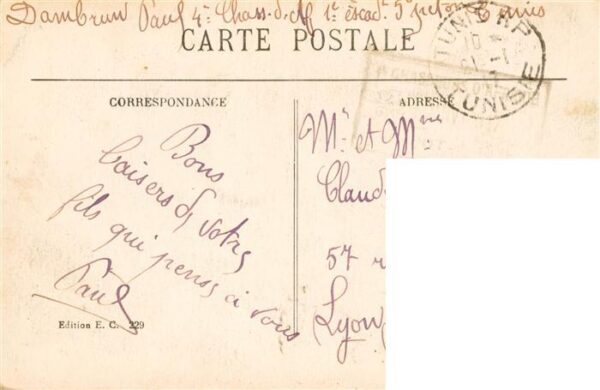 Dambrun Paul 4e Chass. d. Af 1e escad. 5e peloton Tunis
CARTE POSTALE
TUNIS R.P
TUNISIE
CORRESPONDANCE
ADRESSE
Bons
baisers de votre
fils qui pense à vous
Paul
Mr et Mme
Claud
57 r
Lyon
Edition E. C. 229